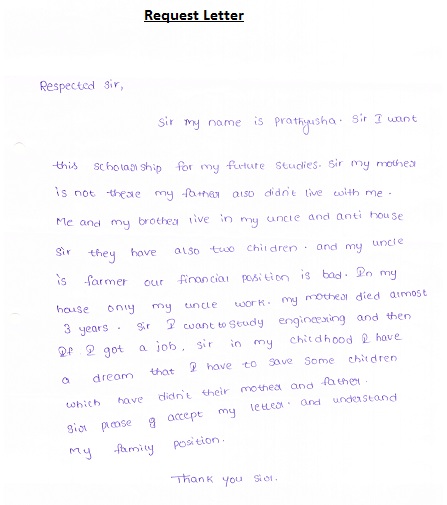 Request Letter
Respected Sir,
Sir my name is Prathyusha. Sir I want
this scholarship for my future studies. Sir my mother
is not there my father also didn't live with me.
Me and my brother live in my uncle and anti house
Sir they have also two children. and my uncle
is farmer our financial position is bad. In my
house only my uncle work. my mother died almost
3 years. Sir I want to study engineering and then
If I got a job. Sir in my childhood I have
a dream that I have to save some children
which have didn't their mother and father.
Sir please accept my letter. and understand
my family position.
Thank you Sir.